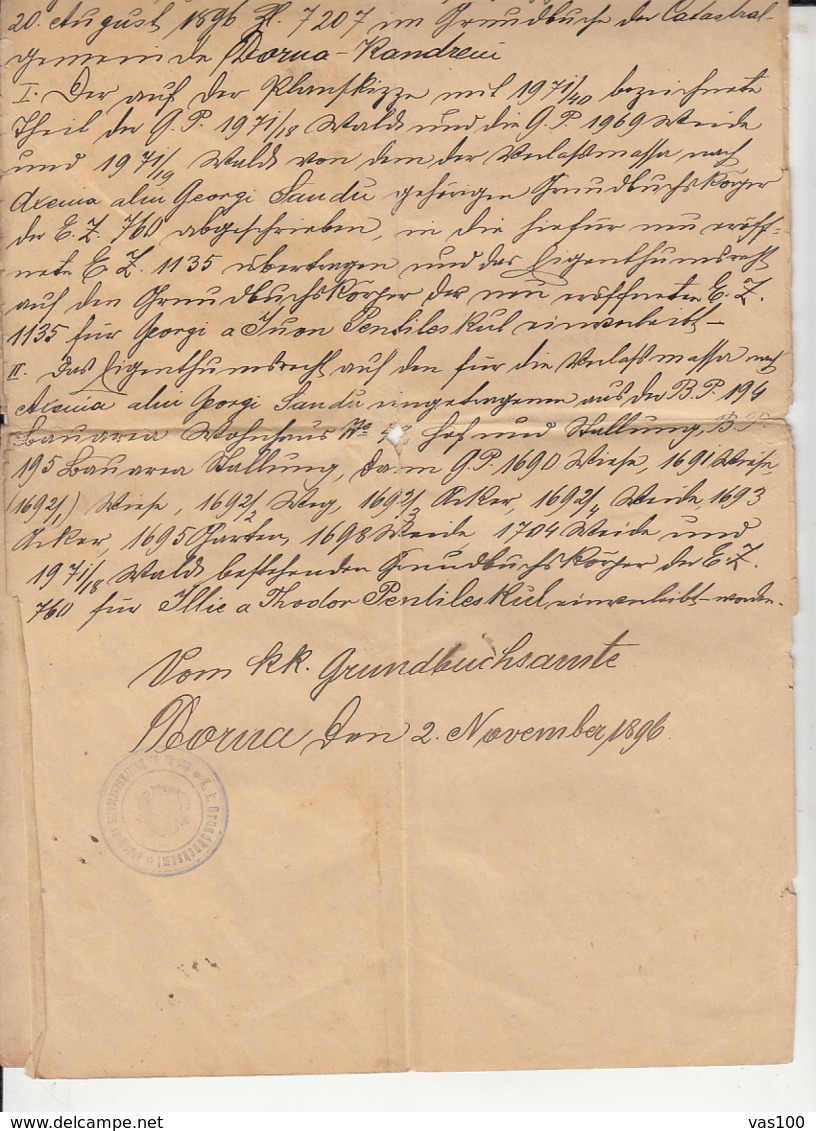 20. August 1896 Zl. 7207 im Grundbuche der Catastral-
gemeinde Dorna-Kandreni
I. Der auf der Planskizze mit 1971/40 bezeichnete
Theil der G.P. 1971/18 Wald und die G.P. 1969 Weide
und 1971/19 Wald von dem der Verlaßmassa nach
Axenia alui Georgi Sandu gehörigen Grundbuchskörper
der E.Z. 760 abgeschrieben, in die hiefür neu eröff-
nete E.Z. 1135 übertragen und das Eigenthumsrecht
auf den Grundbuchskörper der neu eröffneten E.Z.
1135 für Georgi a Iuon Pentileskul einverleibt –
II. Das Eigenthumsrecht auf den für die Verlaßmassa nach
Axenia alui Georgi Sandu eingetragenen aus der B.P. 194
Bauarea Wohnhaus No Hof und Stallung, B.P.
195 Bauarea Stallung, dann G.P. 1690 Wiese, 1691 Wiese
(1692/1) Wiese, 1692/2 Weg, 1692/3 Acker, 1692/4 Weide 1693
Acker, 1695 Garten, 1698 Weide, 1704 Weide und
1971/18 Wald bestehenden Grundbuchskörper der E.Z.
760 für Illie a Thodor Pentileskul einverleibt worden.
Vom kk. Grundbuchsamte
Dorna den 2. November 1896.
K. k. Grundbuchsamt
vas100